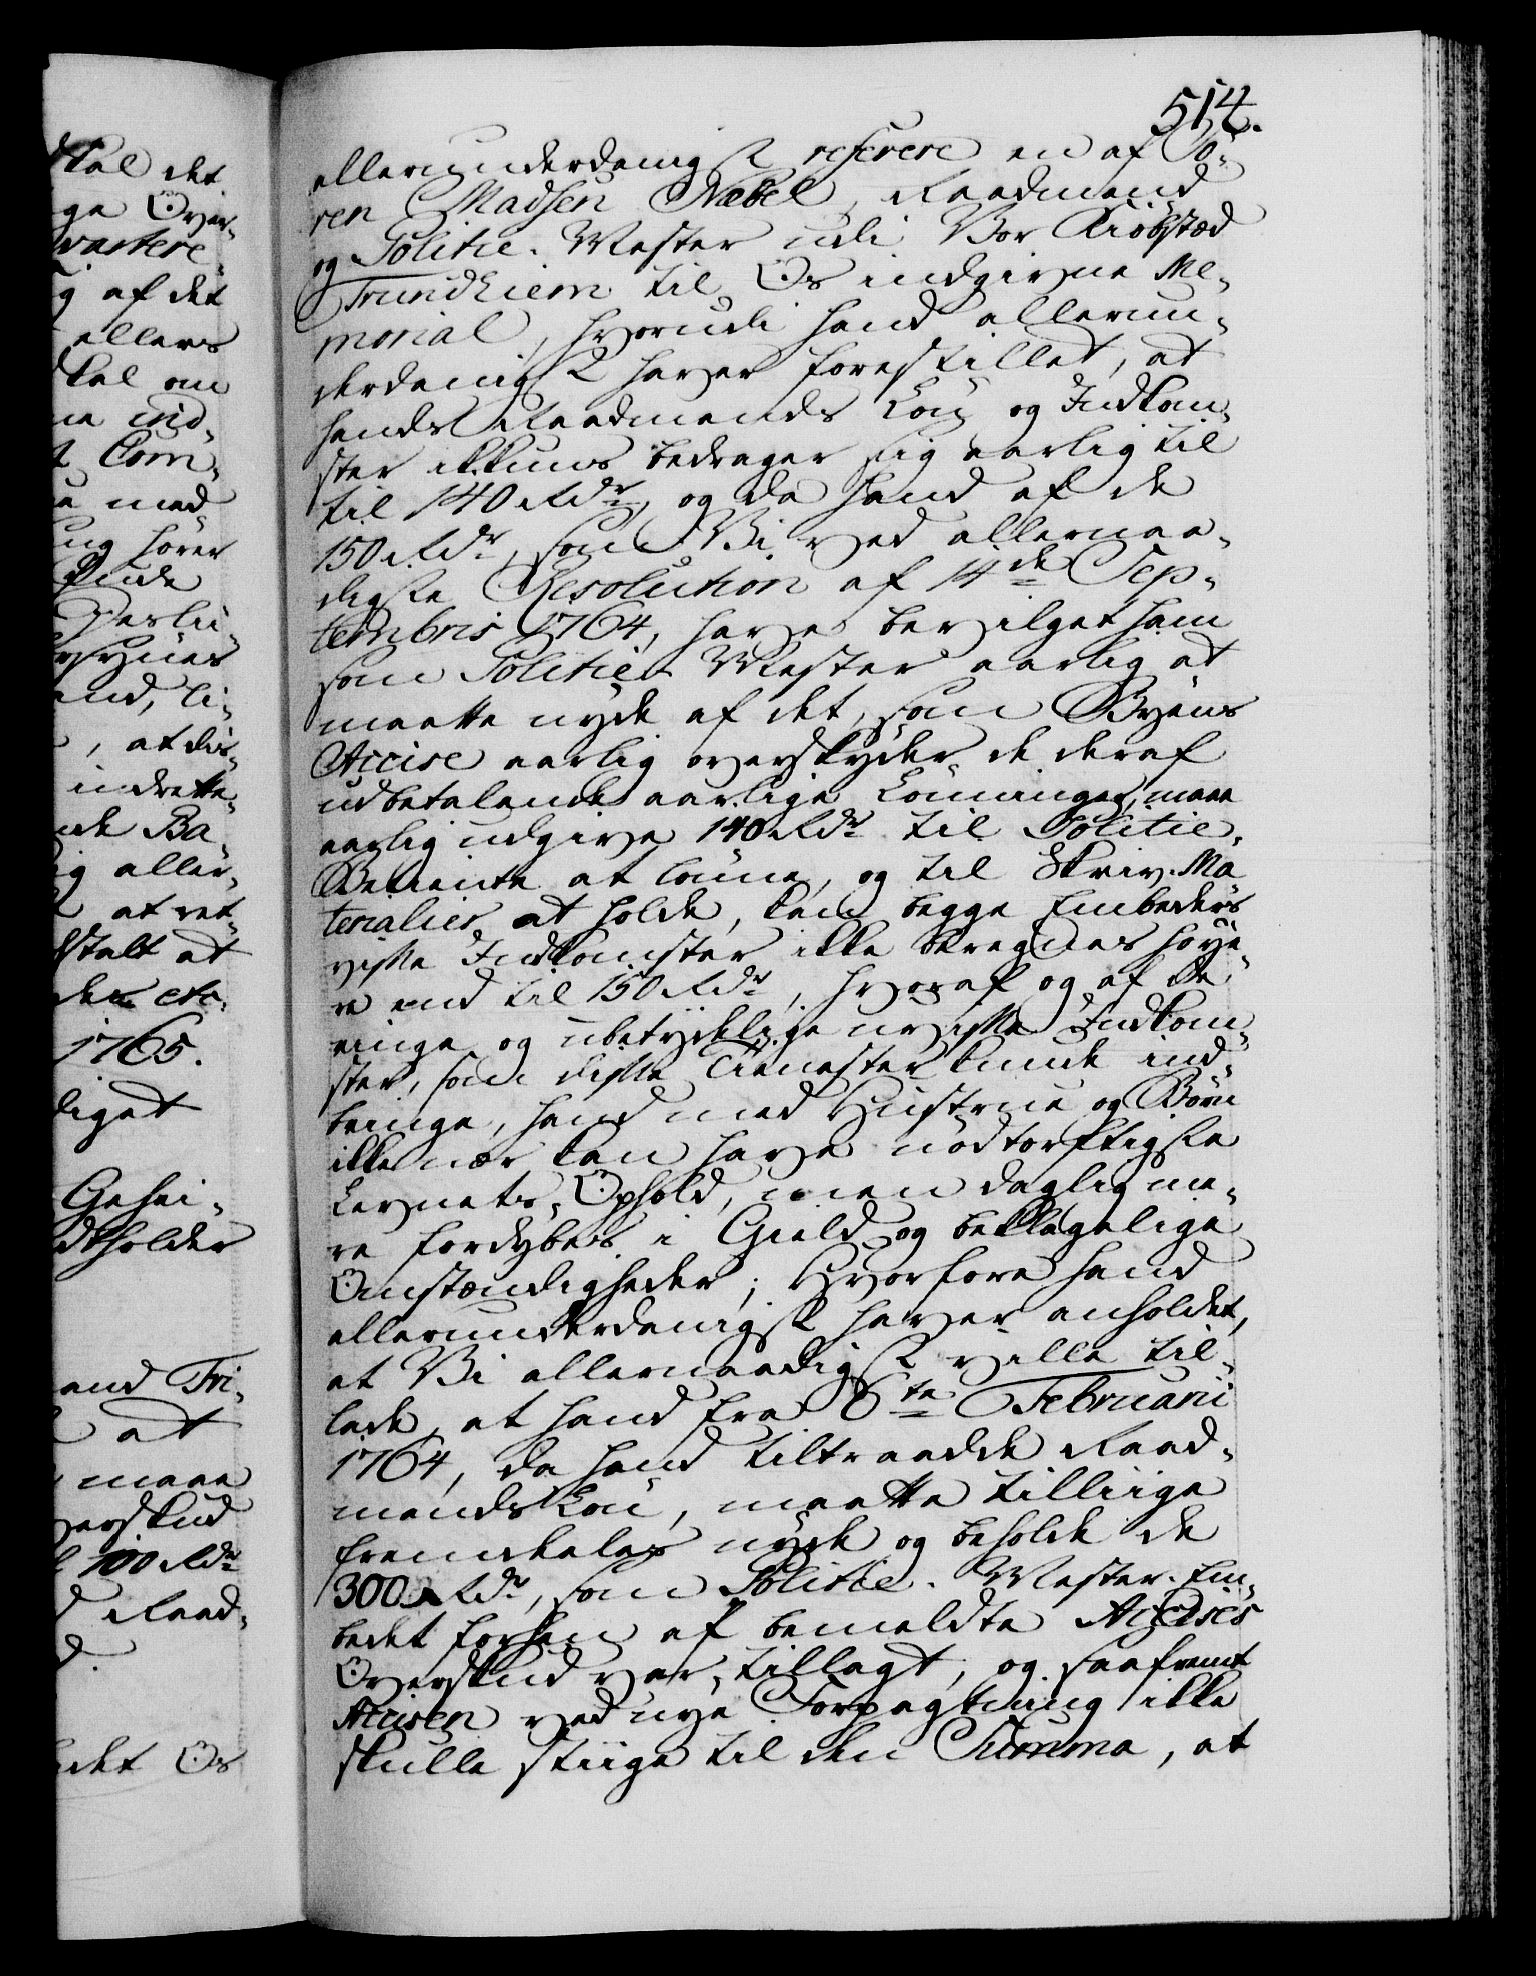 514.
allerunderdanigst referere en af Sö-
ren Madsen Næbel, Raadmand
og Politie-Mester udi Vor Kiöbstæd
Trundhiem til Os indgivne Me-
morial, hvorudi hand allerun-
derdanigst haver forestillet, at
hands Raadmands Lön og Indkom-
ster ikkuns bedrager sig aarlig til
til 140 Rdr, og da hand af de
150 Rdr, som Vi ved allernaa-
digste Resolution af 14de Sep-
tembris 1764, have bevilget ham
som Politie-Mester aarlig at
maatte nyde af det, som Byens
Accise aarlig overskyder de deraf
udbetalende aarlige Lönninger, maae
aarlig udgive 140 Rdr til Politie-
Betiente at lönne, og til Skriv-Ma
terialier at holde, kan begge Embeders
visse Indkomster ikke beregnes höye-
re end til 150 Rdr, hvoraf og af de
ringe og ubetydelige uvisse Indkom-
ster, som disse Tienester kunde ind-
bringe, hand med Hustrue og Börn
ikke nær kan have nödtörftigste
Levnets-Ophold, men daglig me-
re fordybes i Gield og beklagelige
Omstændigheder; Hvorfore hand
allerunderdanigst haver anholdet,
at Vi allernaadigst ville til-
lade, at hand fra 6te Februarii
1764, da hand tiltraadde Raad-
mands Lön, maatte tilliige
fremdeles nyde og beholde de
300 Rdr, som Politie-Mester-Em-
bedet forhen af bemeldte Accises
Overskud var tillagt, og saafremt
Accisen ved nye Forpagtning ikke
skulle stiige til den Summa, at